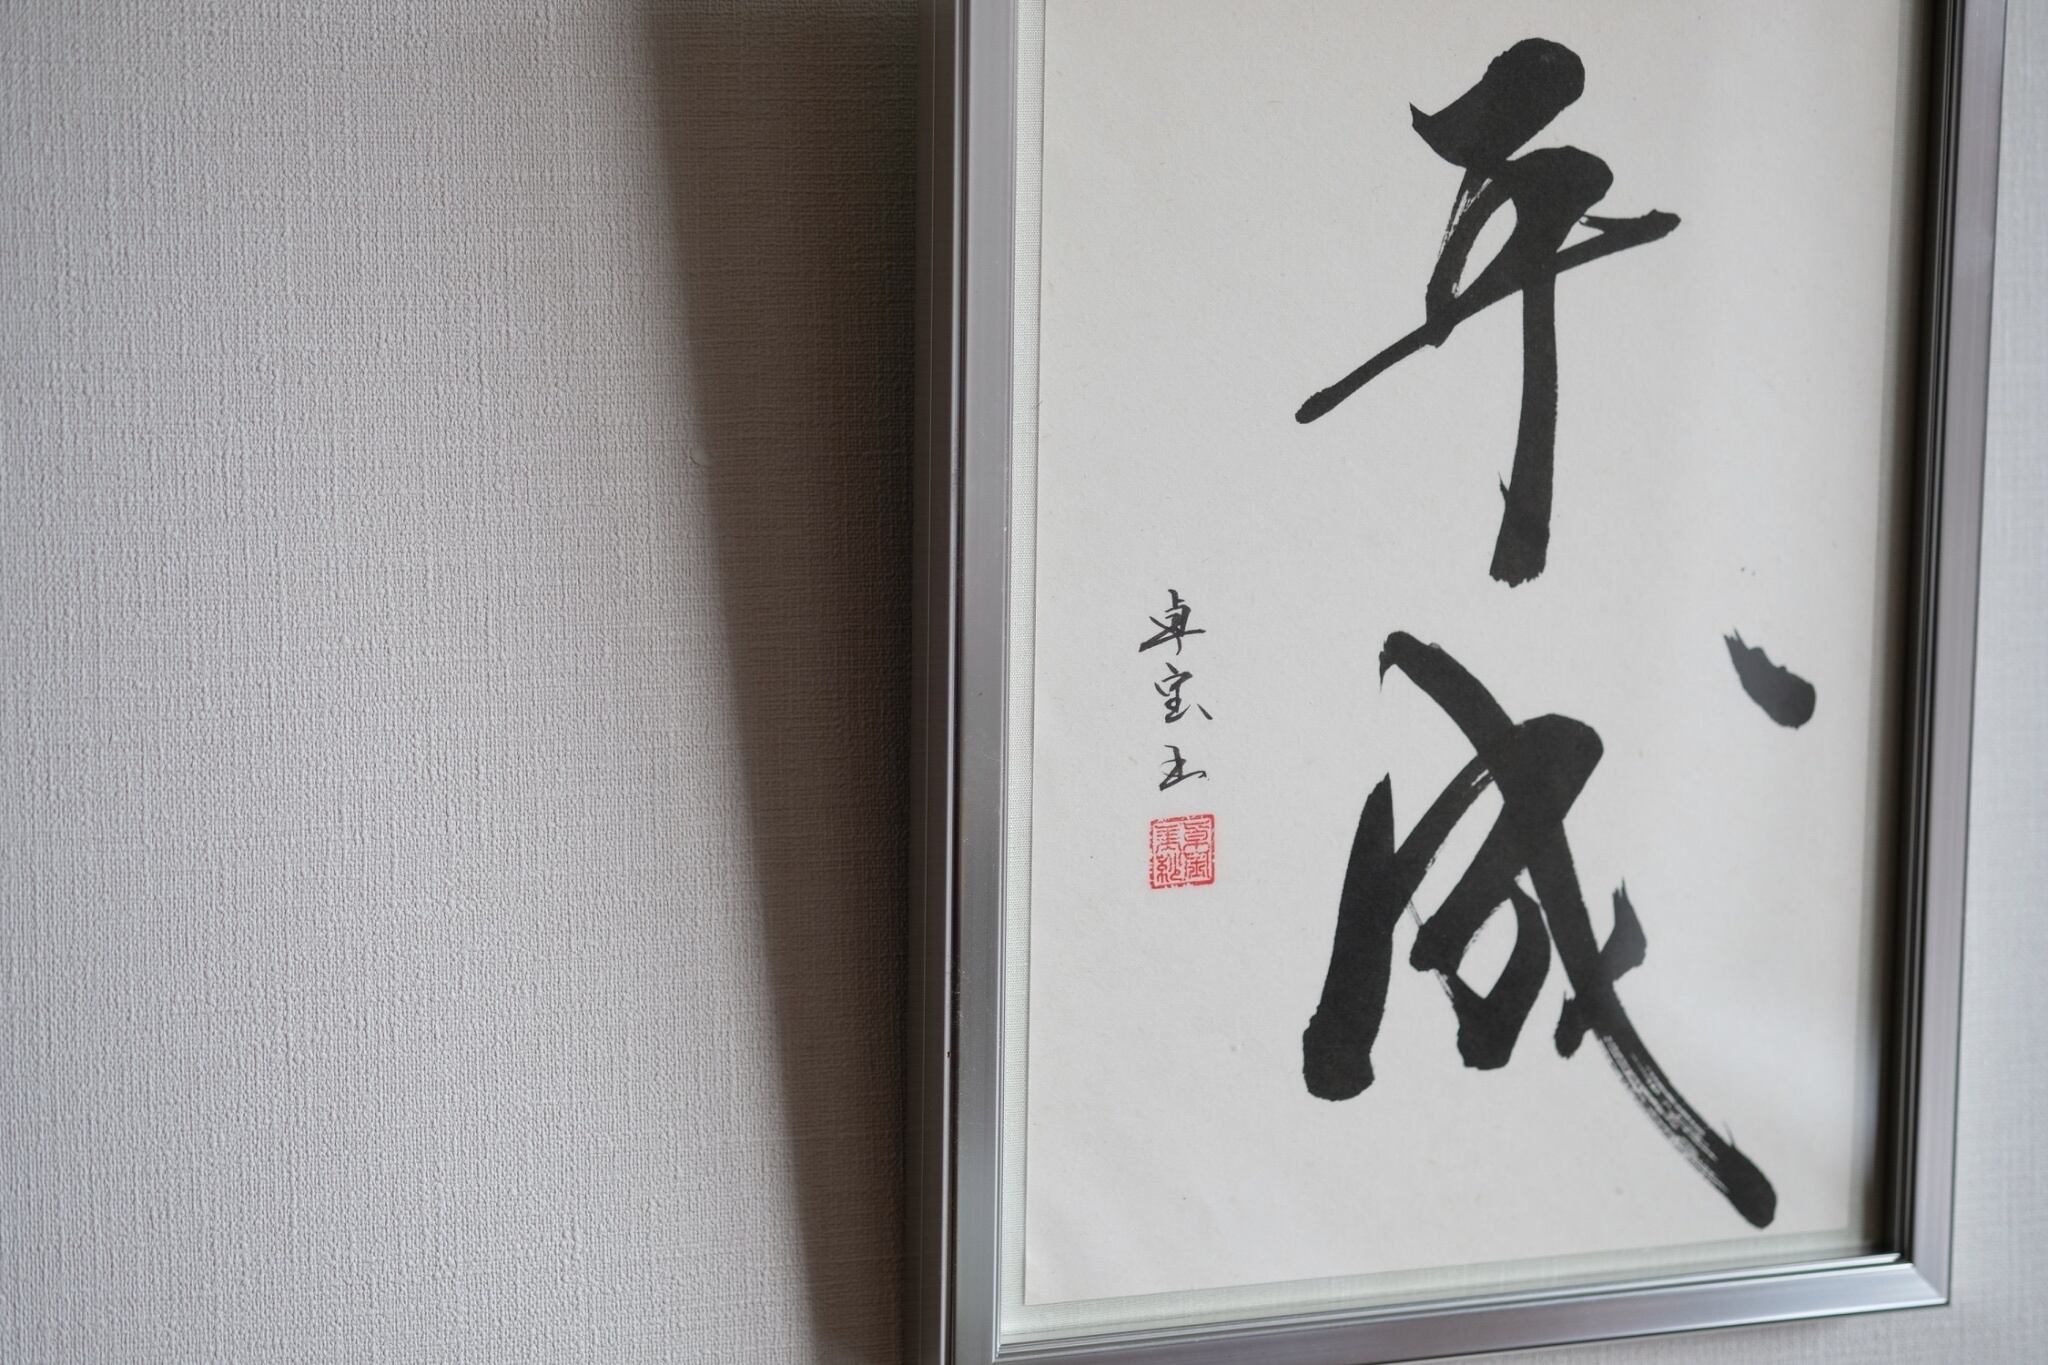 平成
卓宝書